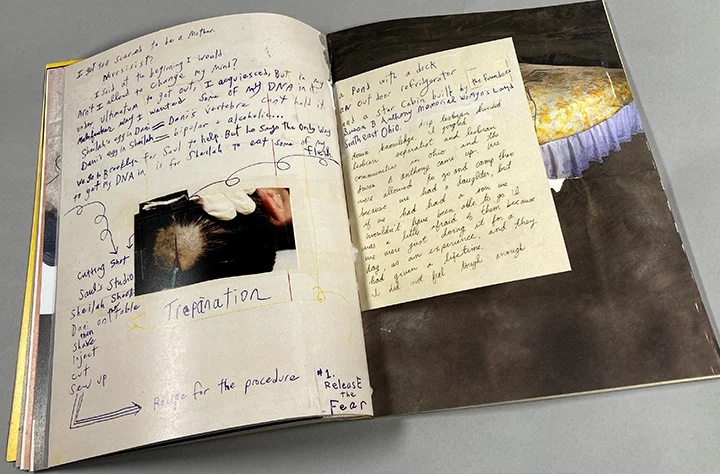 I got too scared to be a Mother.
Narssisist?
I said at the beginning I would.
Arnt I allowed to change my mind?
under Ultimatum to get out, I acquiessed, But in my
way I wanted some of my DNA in it
Sheilah's egg in Dani = Dani's vertebrae can't hold it.
Dani's egg in Sheilah = bipolar + alcoholic...
We go to Brooklyn for Saul to help. But He Says The Only Way
to get my DNA in, is for Sheilah to eat some of my flesh.
Cutting Shot
Saul's Studio
Sheilah Shoots
Dani on table
then
Shave
inject
cut
Sew up
Trepanation
Recipe for the procedure
#1.
Release
the
Fear
a Pond with a deck
an out door refridgerator
and a star Cabin built by the
Susan B. Anthony Memorial Womyn's Land
South East Ohio.
down knowledge dip lesbian
lesbian separatist and lesbian
communities in ohio and the
susan b anthony came up. we
were allowed to go and camp there
because we had a daughter, but
if we had had a son we
wouldn't have been able to go. i
was a little afraid of them because
we were just doing it for a
day as an experience, and they
had given a lifetime.
I did not feel tough enough